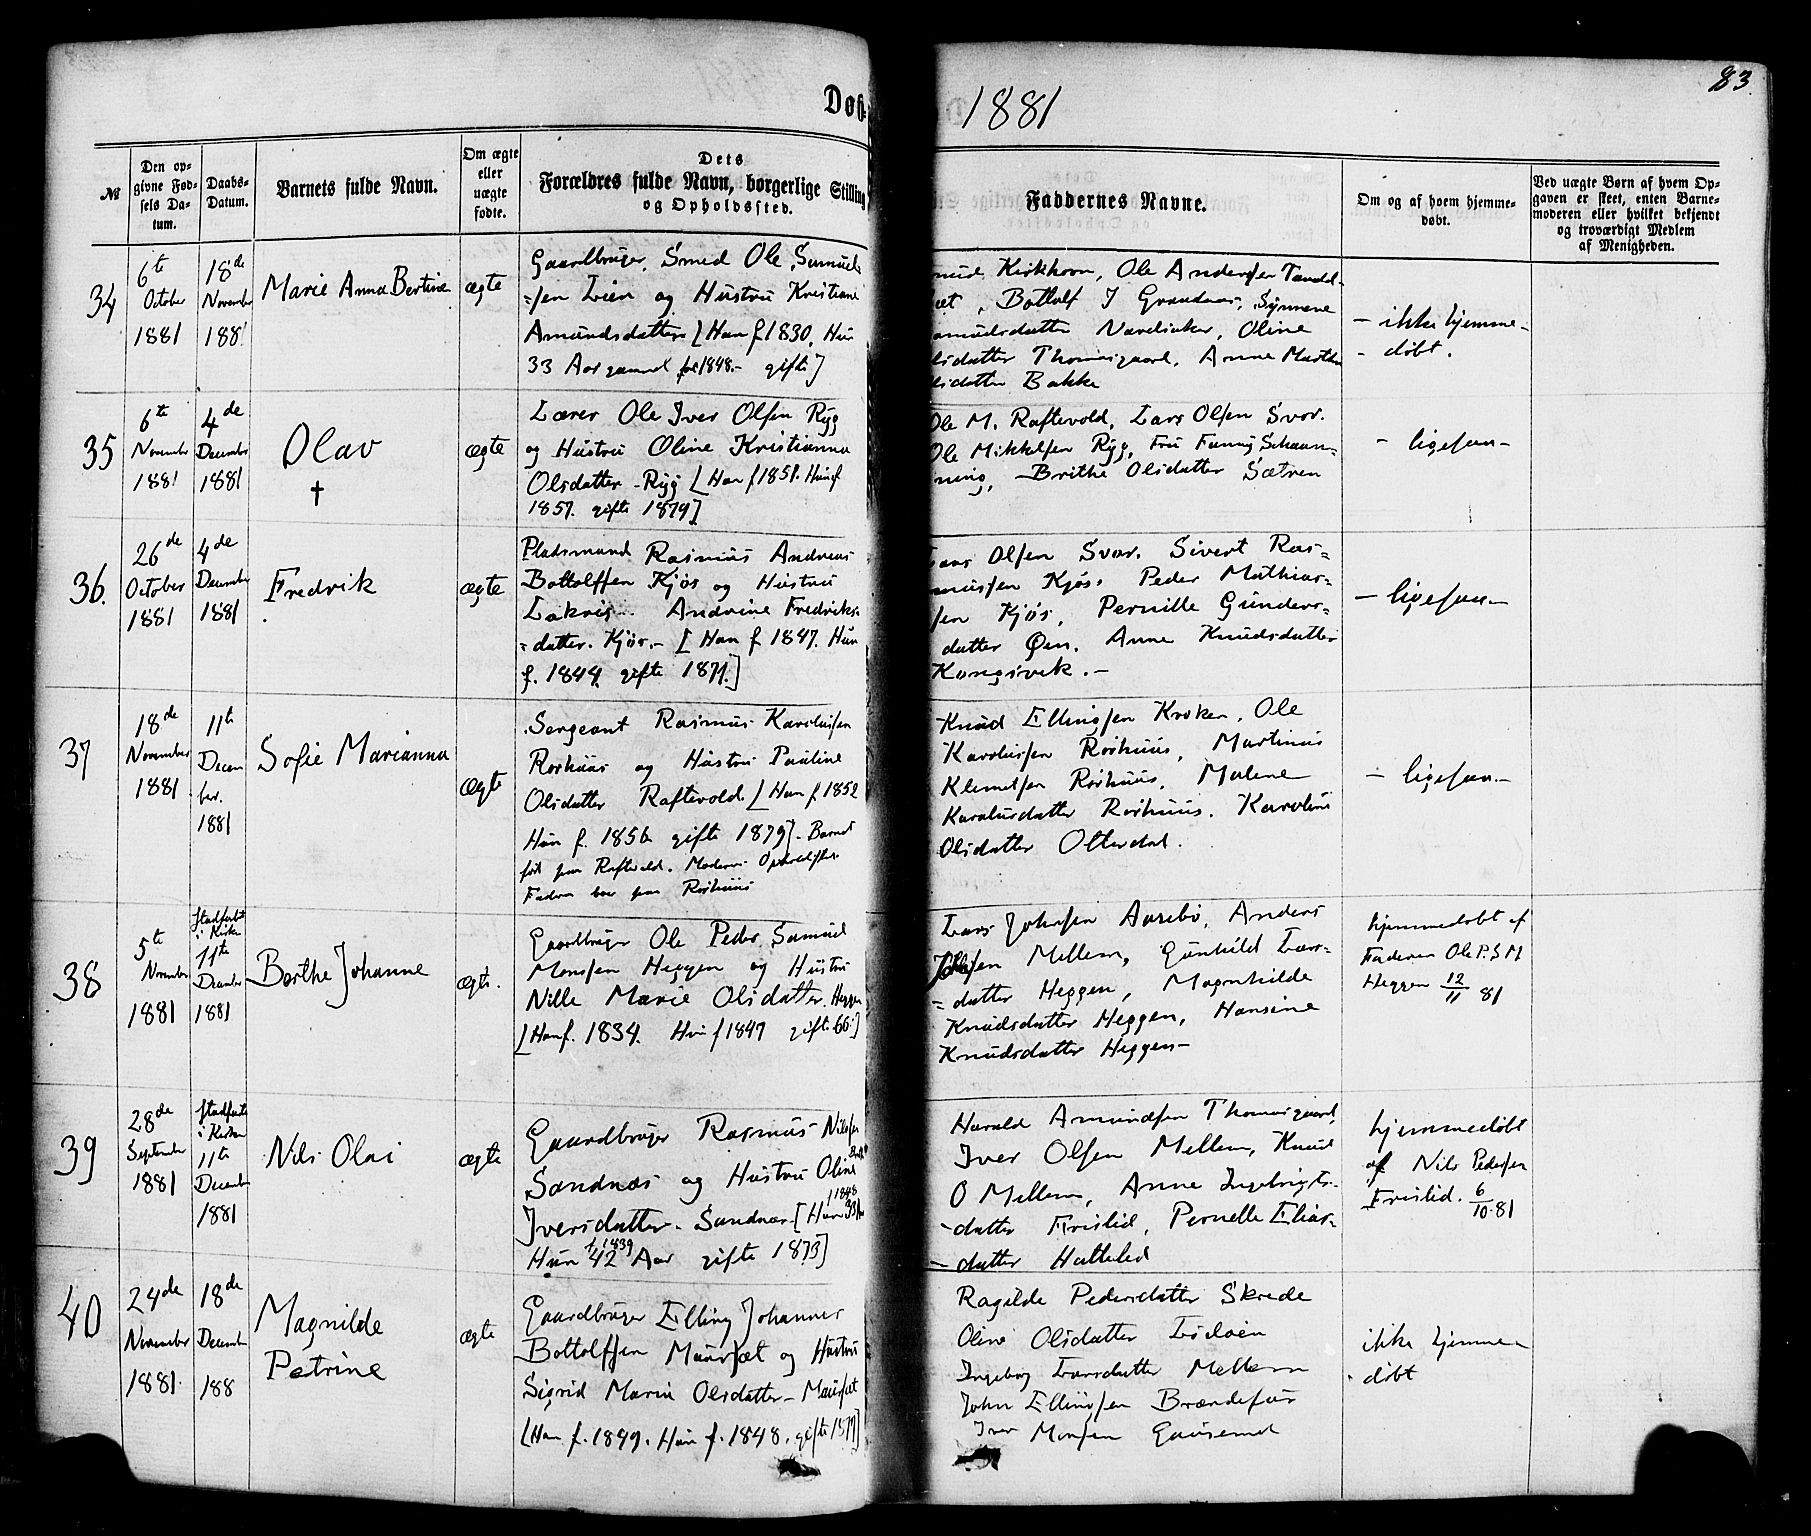 Døb-
1881
83.
№
Den op-
givne Fød-
sels Da-
tum.
Daabs-
Datum.
Barnets fulde Navn.
Om ægte
eller
uægte
fødte.
Dets
Forældres fulde Navn, borgerlige Stilling
og Opholdssted.
Faddernes Navne.
Om og af hvem hjemme-
døbt.
Ved uægte Børn af hvem Op-
gaven er skeet, enten Barne-
moderen eller hvilket bekjendt
og troværdigt Medlem
af Menigheden.
34
6te
October
1881
18de
November
1881
Marie Anna Bertine
ægte
Gaardbruger, Smed Ole Samuel-
=sen Lien og Hustru Kristiane
Amundsdatter [Han f 1830, Hun
33 Aar gammel født 1848.- gifte]
Kirkhorn, Ole Andersen
Bottolf J Grandaas, Synneve
Oline
Thomasgaard, Anne Marthe
Bakke
- ikke hjemme-
- døbt.
35
6te
November
1881
4de
December
1881
Olav
†
ægte
Lærer Ole Iver Olsen Ryg
og Hustru Oline Kristianna
Olsdatter - Ryg [Han f 1851. Hun f
1857. gifte 1879]
Ole M. Raftevold, Lars Olsen Svor.
Ole Mikkelsen Ryg, Fru Fanny Schaan-
ning, - Brithe Olsdatter Sætren
- ligesaa -
36.
26de
October
1881
4de
December
1881
Fredrik
ægte
Pladsmand Rasmus Andreas
Bottolfsen Kjøs og Hustru
Andrine Fredriks-
=datter. Kjøs.- [Han f 1847. Hun
f. 1844. gifte 1871.]
Lars Olsen Svor. Sivert Ras-
mussen Kjøs, Peder Mathias-
sen Kjøs, Pernille Gunders-
datter Øen. Anne Knudsdatter
Kongsvik. -
- ligesaa -
37
18de
November
1881
11te
Decem
ber.
1881
Sofie Marianna
ægte
Sergeant Rasmus Karolussen
Rørhuus og Hustru Pauline
Olsdatter Raftevold. [Han f 1852
Hun f. 1856 gifte 1879] - Barnet
født paa Raftevold. Moderens Opholdssted.
Faderen boer paa Rørhuus
Knud Ellingsen Kroken, Ole
Karolussen Rørhuus, Martinus
Klemetsen Rørhuus, Malene
Karolusdatter Rørhuus. Karoline
Olsdatter Otterdal.
- ligesaa -
38
5te
November
1881
stadfæstet
i Kirken
11te
December
1881
Berthe Johanne
ægte.
Gaardbruger Ole Peder Samuel
Monssen Heggen og Hustru
Nille Marie Olsdatter. Heggen
[Han f. 1834. Hun f 1847 gifte 66.]
Lars Johnsen Aarebø, Anders
Mellem, Gunhild Lars-
=datter Heggen, Magnhilde
Knudsdatter Heggen, Hansine
Knudsdatter Heggen-
hjemmedøbt af
Faderen Ole P. S M
Heggen 12/11 81
39
28de
September
1881
stadfæstet
i Kirken
11te
December
1881
Nils Olai
ægte
Gaardbruger Rasmus Nilssen
Sandnæs og Hustru Oline
Iversdatter - Sandnæs [Han f 1848 33 Aar
Hun f. 1839 42 Aar gifte 1873]
Harald Amundsen Thomasgaard,
Iver Olsen Mellem, Knud
O Mellem, Anne Ingebrigts-
- datter Frislid, Pernelle Elias-
- datter Hatleled
hjemmedøbt
af Nils Pedersen
Frislid. 6/10-81
40
24de
November
1881.
18de
December
188
Magnilde
Petrine
ægte
Gaardbruger Elling Johannes
Bottolfsen Maursæt og Hustru
Sigrid Marie Olsdatter - Maursæt
[Han f. 1849. Hun f. 1848. gifte 1879]
Ragnilde Pedersdatter Skrede
Oline Olsdatter
Ingeborg Larsdatter Mellem
John Ellingsen Brændefur
Iver Monsen Gausemel
ikke hjemme
- døbt